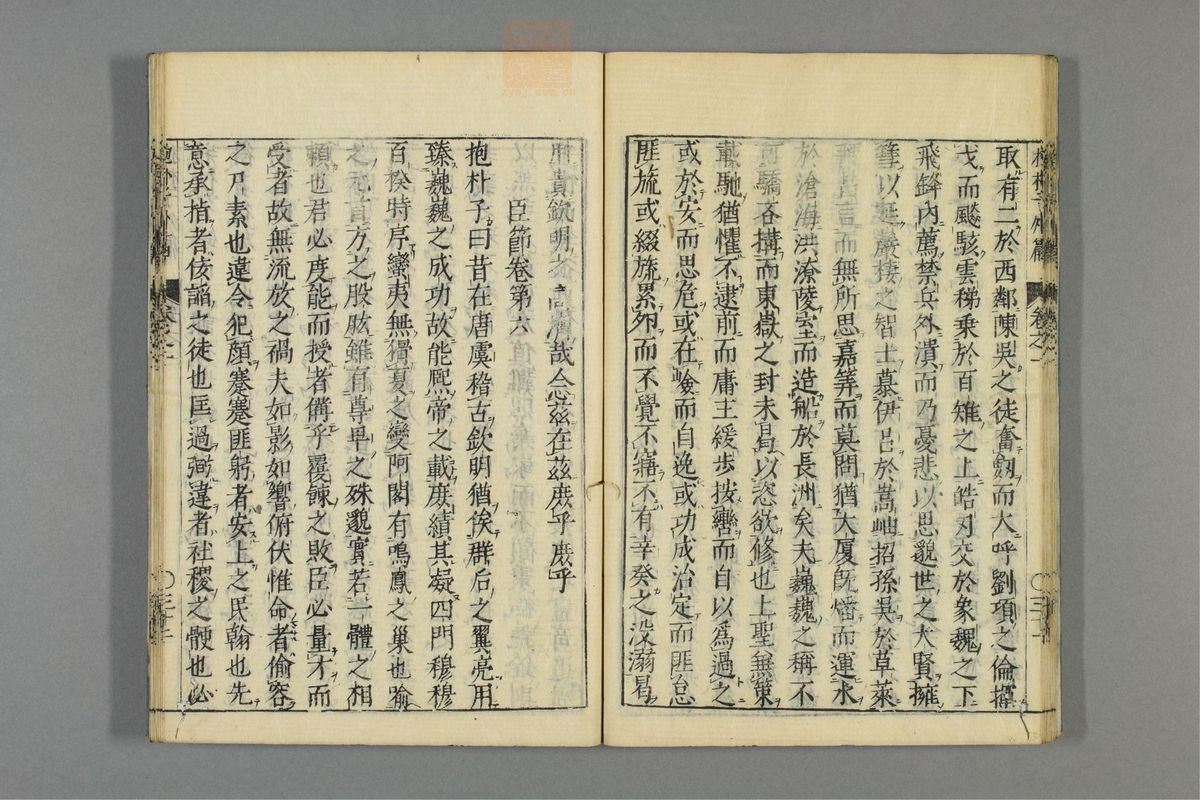 取有二於西鄰陳吳之徒奮劔而大呼劉項之倫揮
戈而飈駭雲梯乗於百雉之上皓刄交於象魏之下
飛鋒内薦禁兵外潰而乃憂悲以思邈世之大賢擁
篲以延巖棲之智士慕伊吕於嵩岫招孫吳於草萊
言而無所思嘉筭而莫問猶大厦既燔而運水
於滄海洪潦凌室而造船於長洲矣夫巍巍之稱不
可驕吝搆而東嶽之封未以恣欲修也上聖兼策
載馳猶懼不逮前而庸王緩歩按轡而自以爲過之
或於安而思危或在嶮而自逸或功成治定而匪怠
匪旒或綴旒累卵而不覺不寤不有辛癸之没溺曷
用貴欽明之哉念茲在茲庶乎庶乎
臣節卷第六
抱朴子曰昔在唐虞稽古欽明猶俟群后之翼亮用
臻巍巍之成功故能熙帝之載庶績其凝四門穆穆
百揆時序蠻夷無猾夏之變阿閣有鳴鳳之巢也喻
之元首方之股肱雖有尊卑之殊邈實若一體之相
頼也君必度能而授者備乎覆餗之敗臣必量才而
受者故無流放之禍夫如影如響俯伏惟命者偷容
之凡素也違令犯顔蹇蹇匪躬者安上之民翰也先
意承指者佞諂之徒也匡過弼違者社稷之骾也必